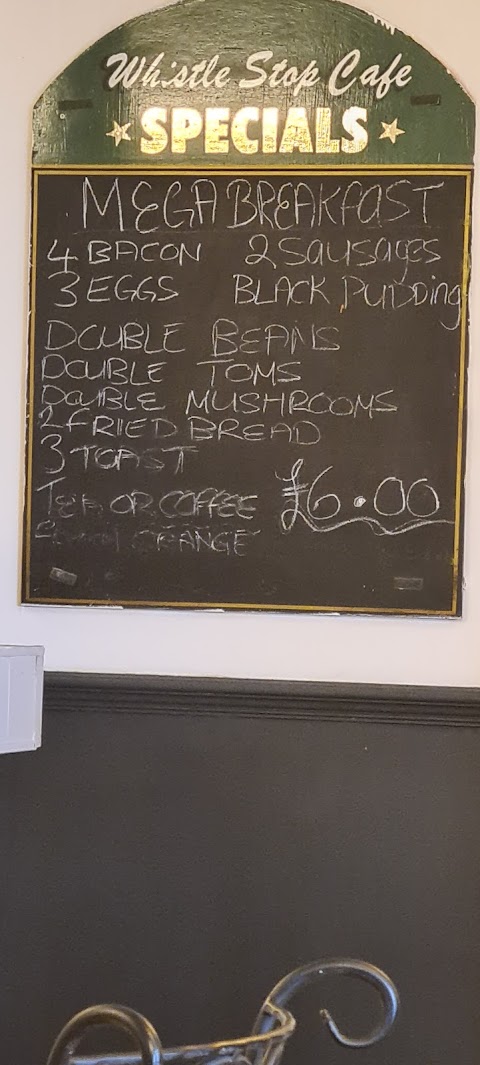 Whistle Stop Cafe
SPECIALS
MEGA BREAKFAST
4 BACON 2 Sausages
3 EGGS BLACK Pudding
DOUBLE BEANS
DOUBLE TOMS
DOUBLE MUSHROOMS
2 FRIED BREAD
3 TOAST
TEA OR COFFEE £6.00
ORANGE